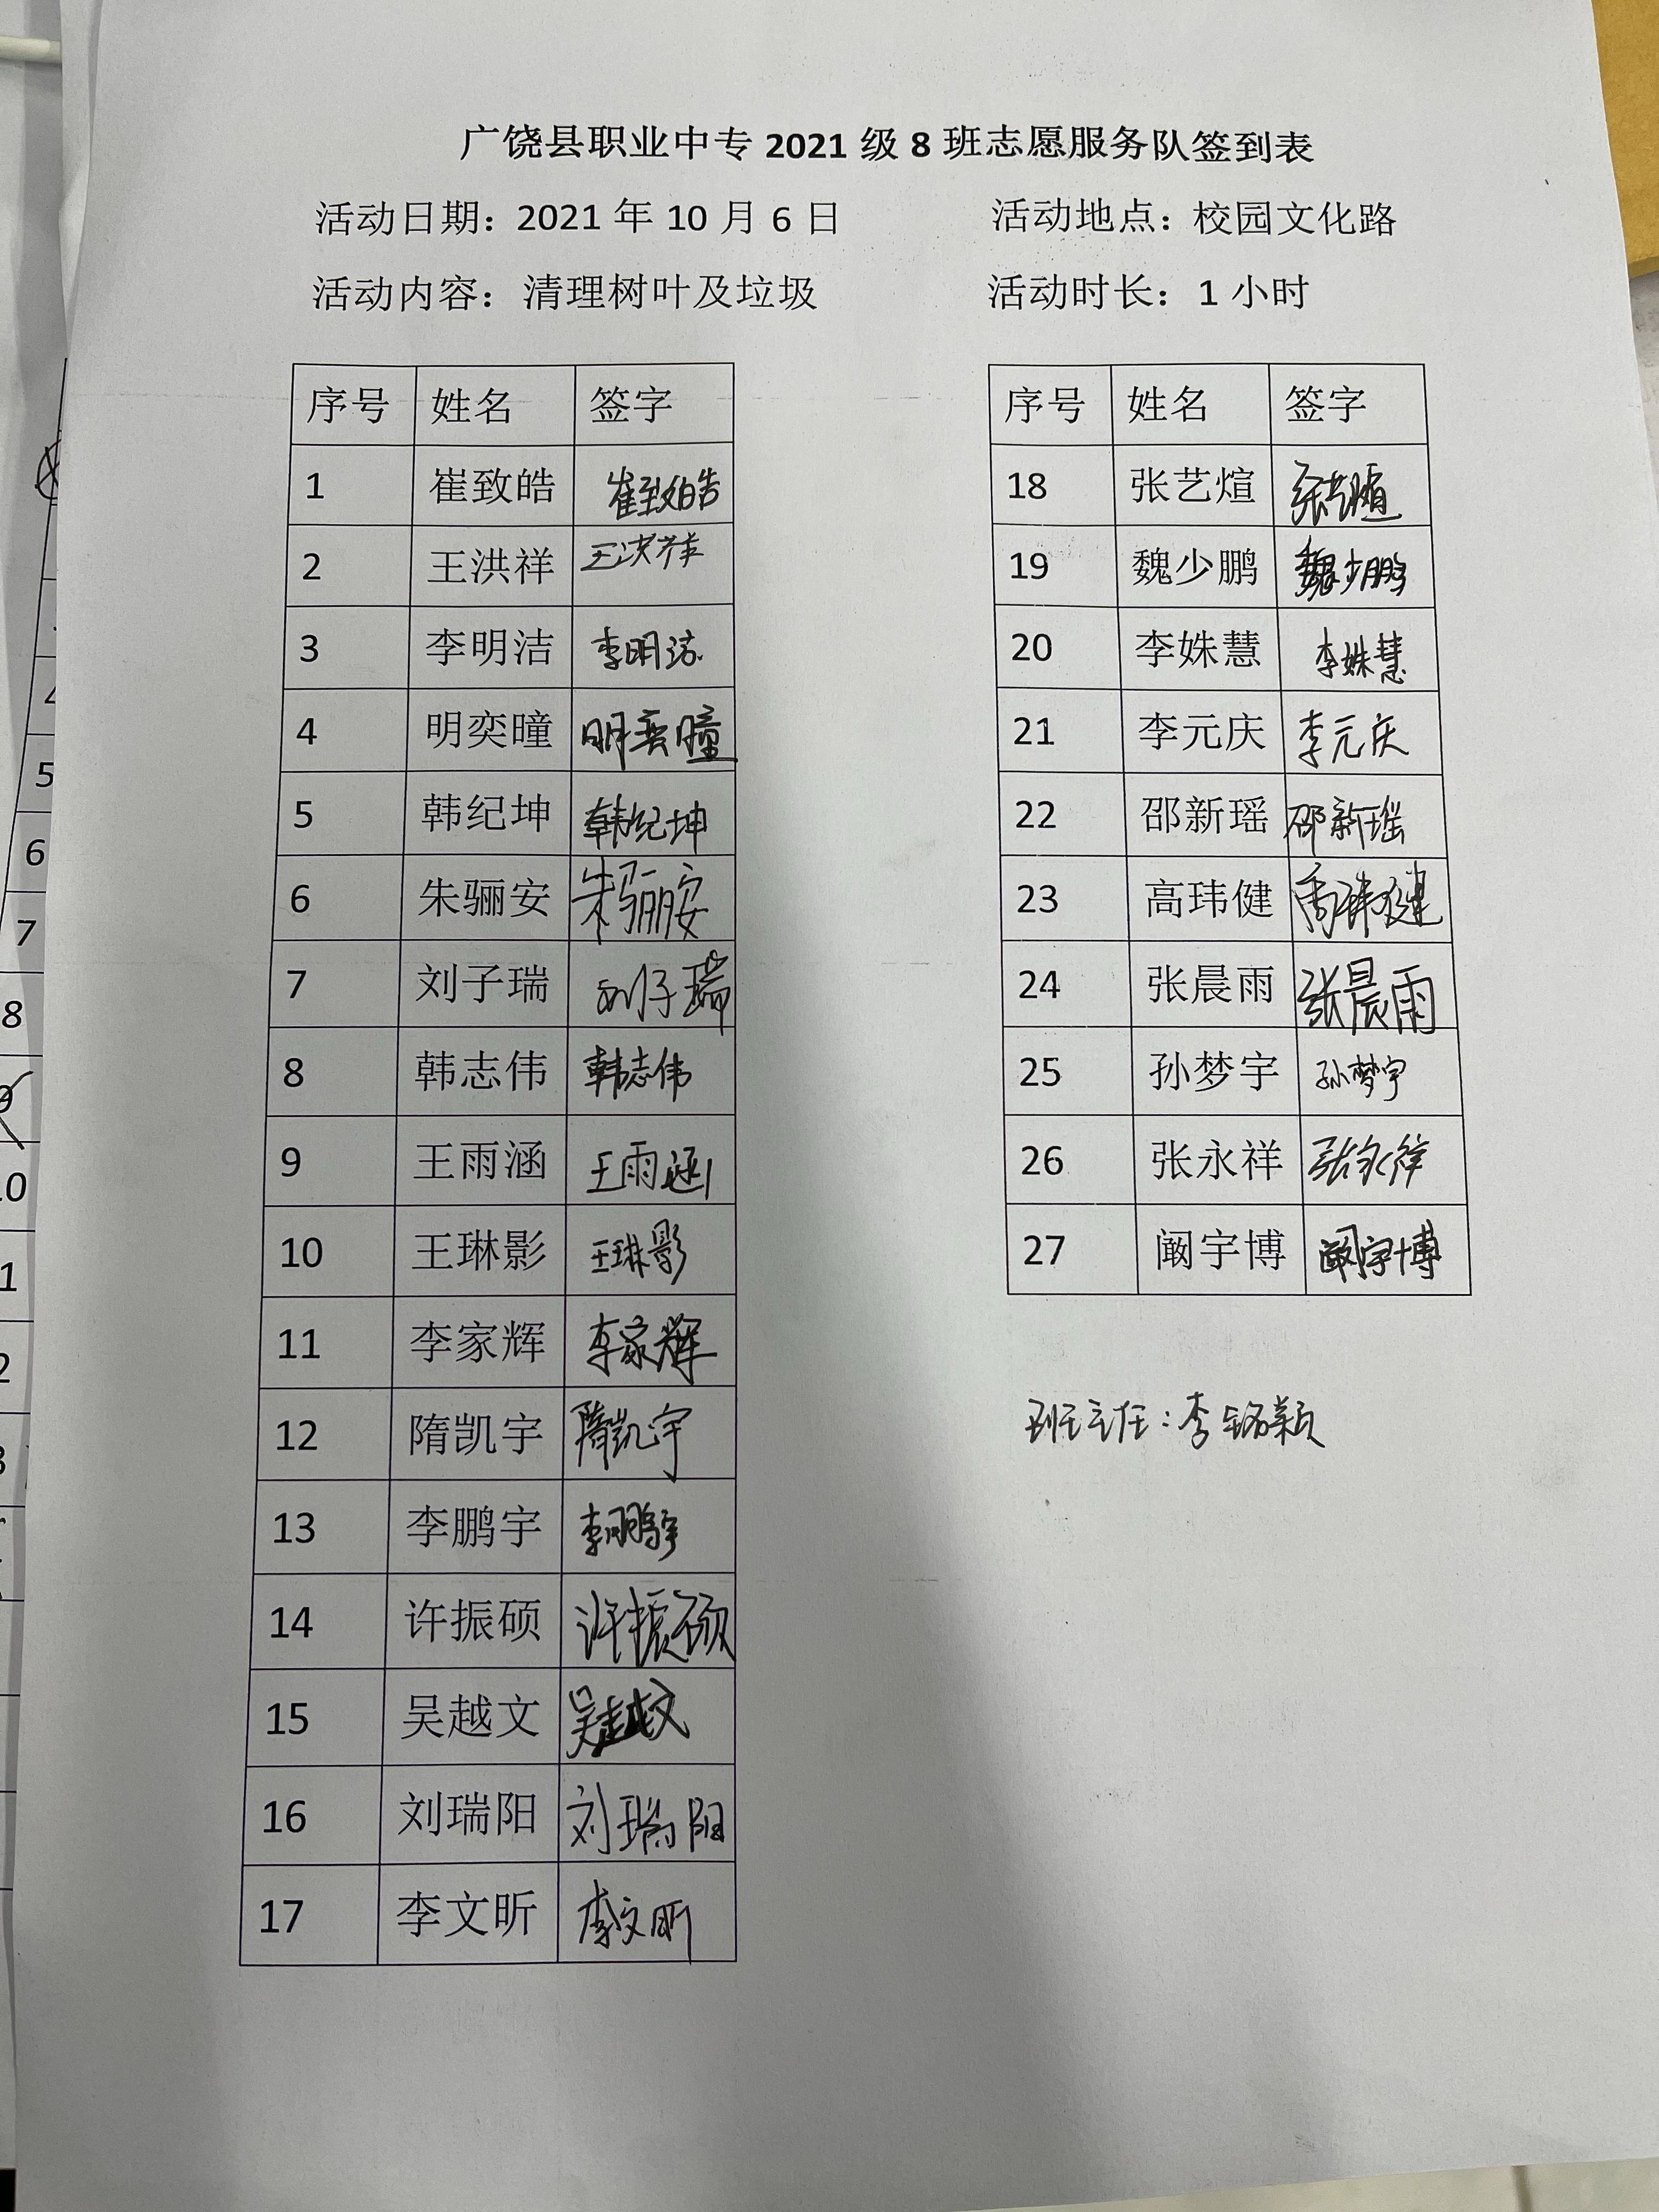 广饶县职业中专 2021 级 8 班志愿服务队签到表
活动日期：2021 年 10 月 6 日 活动地点：校园文化路
活动内容：清理树叶及垃圾 活动时长：1 小时
序号 姓名 签字
1 崔致皓 崔致皓
2 王洪祥 王洪祥
3 李明洁 李明洁
4 明奕曈 明奕曈
5 韩纪坤 韩纪坤
6 朱骊安 朱骊安
7 刘子瑞 刘子瑞
8 韩志伟 韩志伟
9 王雨涵 王雨涵
10 王琳影 王琳影
11 李家辉 李家辉
12 隋凯宇 隋凯宇
13 李鹏宇 李鹏宇
14 许振硕 许振硕
15 吴越文 吴越文
16 刘瑞阳 刘瑞阳
17 李文昕 李文昕
序号 姓名 签字
18 张艺煊 张艺煊
19 魏少鹏 魏少鹏
20 李姝慧 李姝慧
21 李元庆 李元庆
22 邵新瑶 邵新瑶
23 高玮健 高玮健
24 张晨雨 张晨雨
25 孙梦宇 孙梦宇
26 张永祥 张永祥
27 阚宇博 阚宇博
班主任：李铭颖